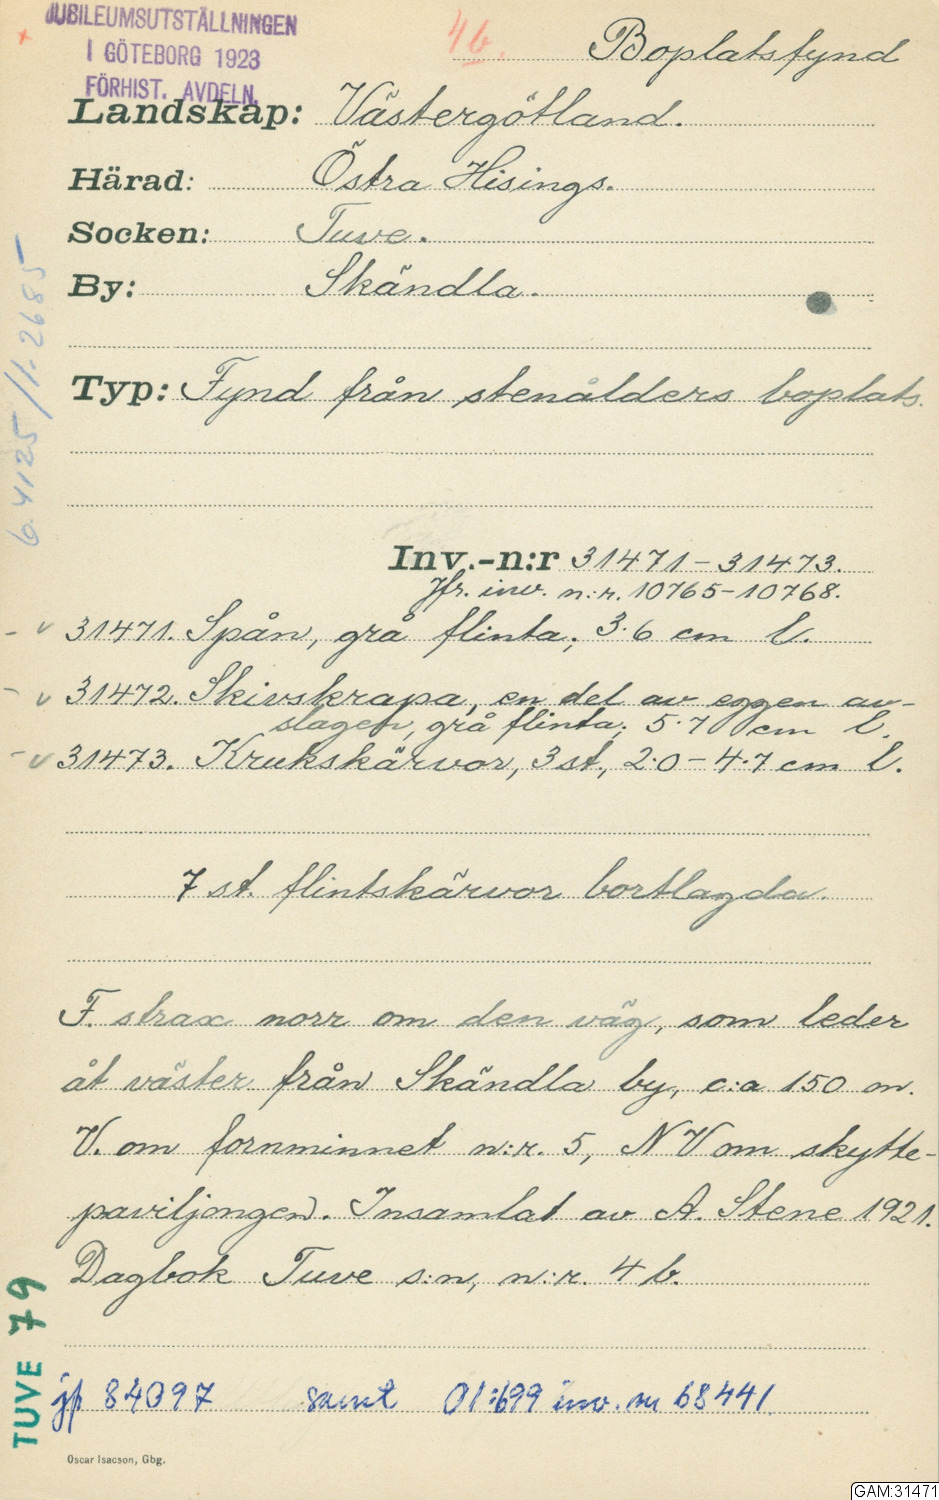 JUBILEUMSUTSTÄLLNINGEN
I GÖTEBORG 1923
FÖRHIST. AVDELN.
4b.
Boplatsfynd
Landskap: Västergötland.
Härad: Östra Hisings.
Socken: Tuve.
By: Skändla.
Typ: Fynd från stenålders boplats.
Inv.-n:r 31471-31473.
Jfr. inv. n:r. 10765-10768.
31471. Spån, grå flinta; 3.6 cm l.
31472. Skivskrapa, en del av eggen av-
slagen, grå flinta; 5.7 cm l.
31473. Krukskärvor, 3 st., 2.0-4.7 cm l.
7 st. flintskärvor bortlagda.
F. strax norr om den väg, som leder
åt väster från Skändla by, c:a 150 m.
V. om fornminnet n:r. 5, NV om skytte-
paviljongen. Insamlat av A. Stene 1921.
Dagbok Tuve s:n, n:r. 4 b.
jf 84097 samt 01:699 inv. nr 68441.
TUVE 79
Oscar Isacson, Gbg.
GAM:31471